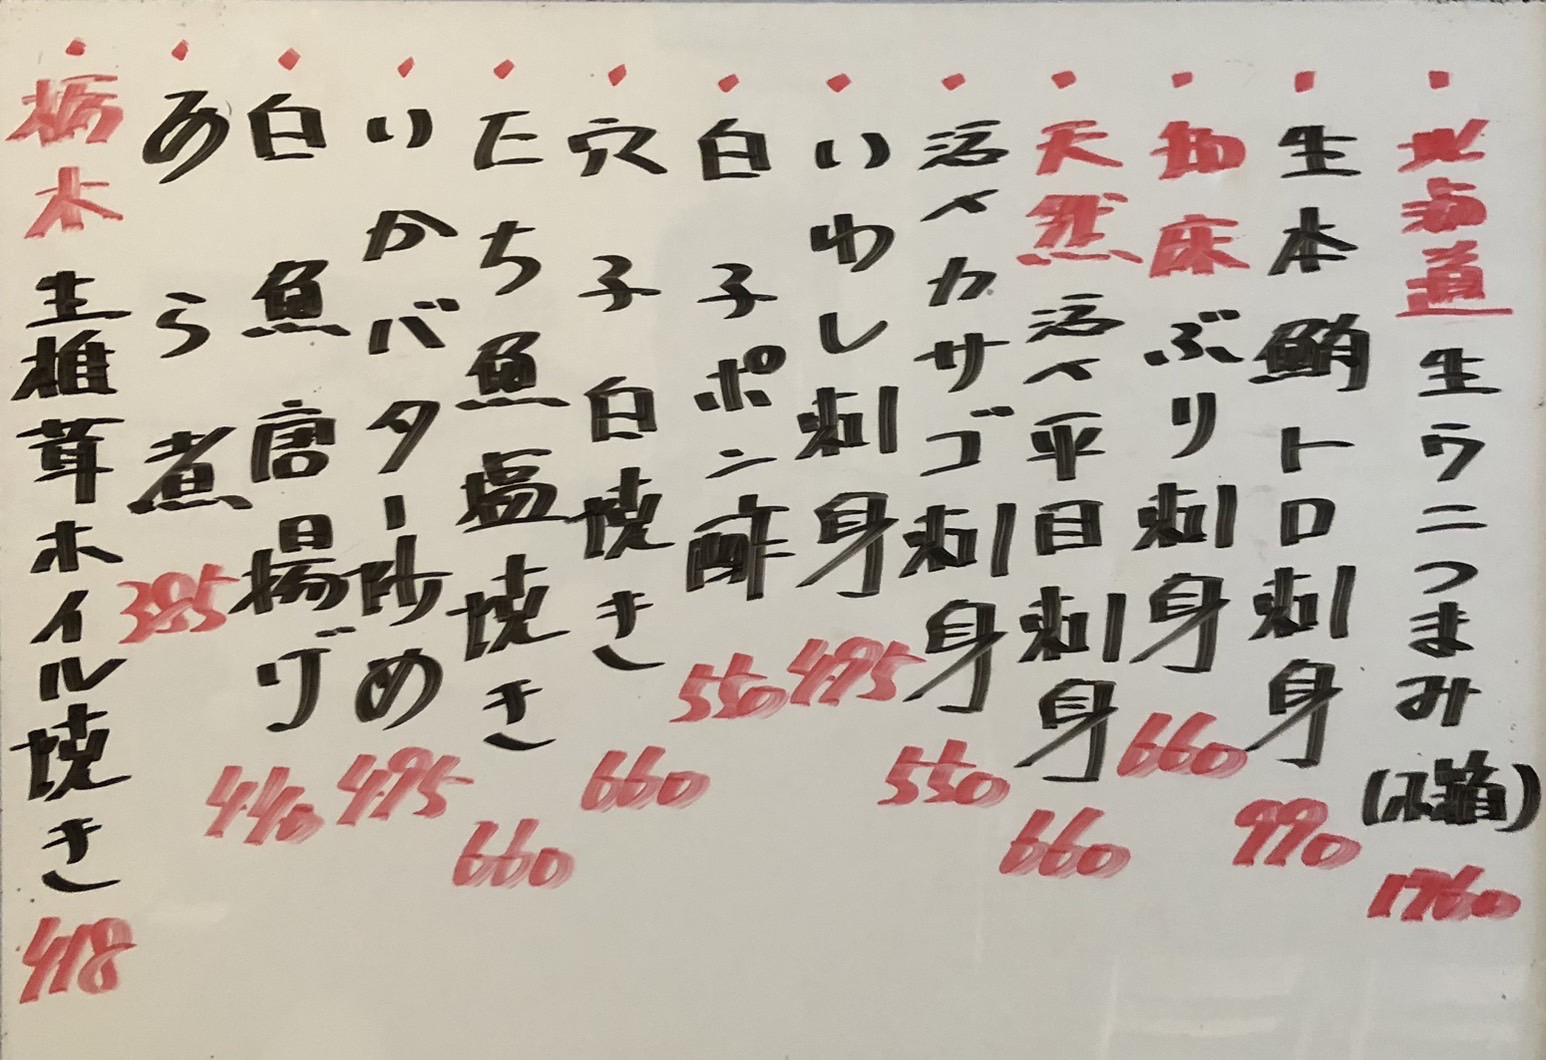 北海道生ウニつまみ(小箱) 1760
生本鮪トロ刺身 990
羽床ぶり刺身 660
天然活〆平目刺身 660
活〆カサゴ刺身 550
いわし刺身 495
白子ポン酢 550
穴子白焼き 660
たち魚塩焼き 660
いかバター炒め 495
白魚唐揚げ 440
あら煮 385
栃木生椎茸ホイル焼き 418